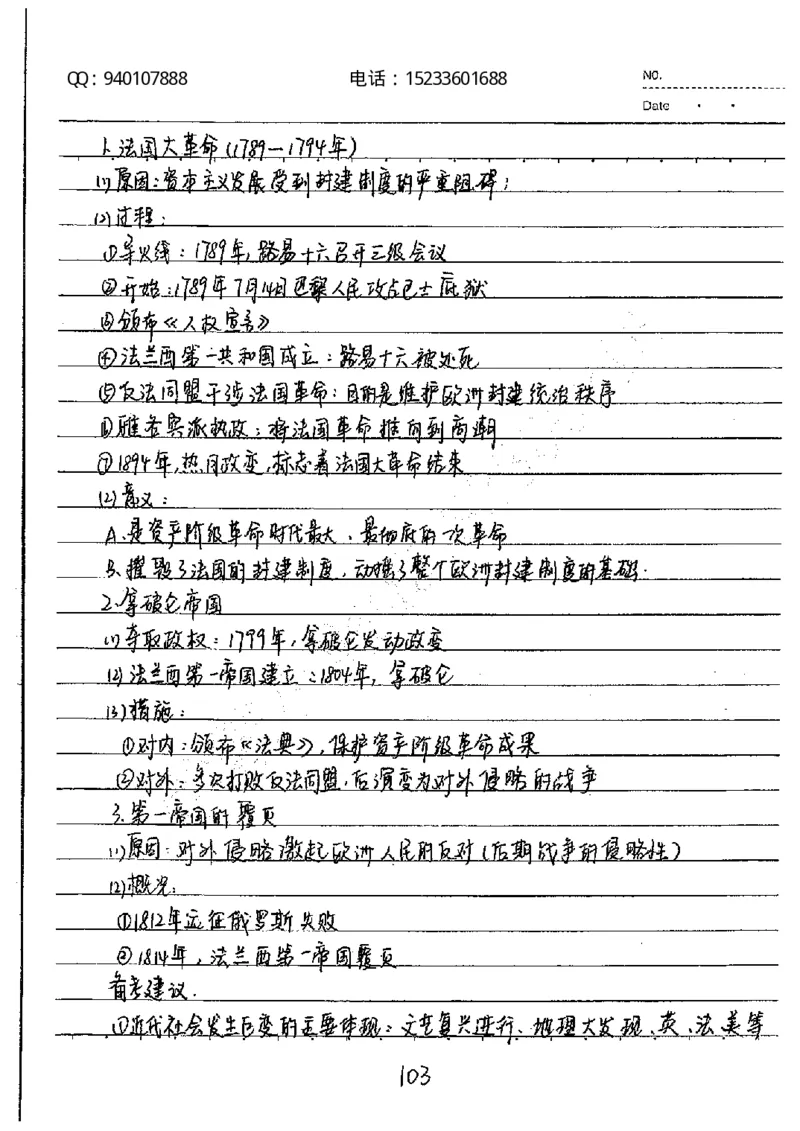 QQ：940107888 电话：15233601688 NO.
Date
1.法国大革命(1789—1794年)
(1)原因:资本主义发展受到封建制度的严重阻碍;
(2)过程:
①导火线:1789年,路易十六召开三级会议
②开始:1789年7月14日巴黎人民攻占巴士底狱
③颁布《人权宣言》
④法兰西第一共和国成立:路易十六被处死
⑤反法同盟干涉法国革命:目的是维护欧洲封建统治秩序
⑥雅各宾派执政:将法国革命推向到高潮
⑦1894年,热月政变,标志着法国大革命结束
(2)意义:
A.是资产阶级革命时代最大、最彻底的一次革命
B.摧毁了法国的封建制度,动摇了整个欧洲封建制度的基础.
2.拿破仑帝国
(1)夺取政权:1799年,拿破仑发动政变
(2)法兰西第一帝国建立:1804年,拿破仑
(3)措施:
①对内:颁布《法典》,保护资产阶级革命成果
②对外:多次打败反法同盟,后演变为对外侵略的战争
3.第一帝国的覆页
(1)原因:对外侵略激起欧洲人民的反对(后期战争的侵略性)
(2)概况:
①1812年远征俄罗斯失败
②1814年,法兰西第一帝国覆页
备考建议.
①近代社会发生巨变的主要体现:文艺复兴进行、地理大发现、英、法、美等
103